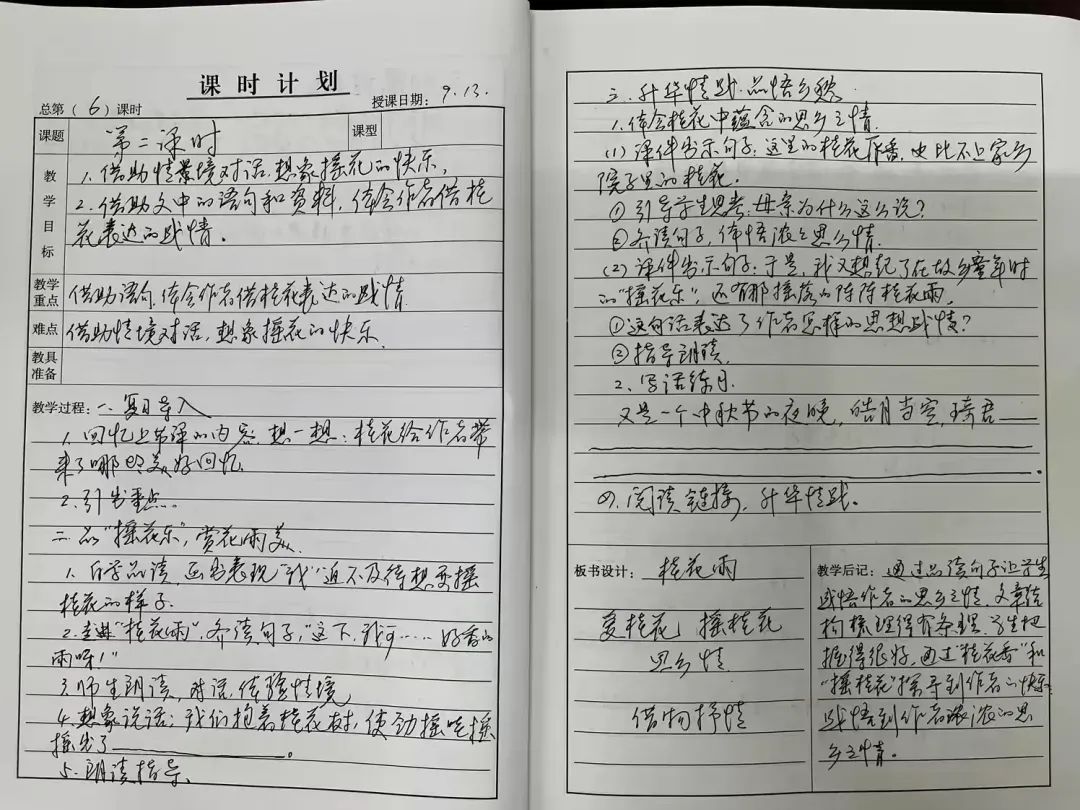 课时计划
总第(6)课时 授课日期:9.13.
课题 第二课时 课型
教学目标
1.借助情景境对话,想象摇花的快乐,
2.借助文中的语句和资料,体会作者借桂
花表达的感情。
教学重点 借助语句,体会作者借桂花表达的感情
难点 借助情境对话,想象摇花的快乐
教具准备
教学过程:一、复习导入
1.回忆上节课的内容,想一想:桂花给作者带
来了哪些美好回忆
2.引出重点.
二.品“摇花乐”,赏花雨美
1.自学品读,画出表现“我”迫不及待想要摇
桂花的样子.
2.“桂花雨”,齐读句子,“这下,我可……好香的
雨呀!”
3.师生朗读,对话,体验情境
4.想象说话:我们抱着桂花树,使劲摇哇摇
摇出了____________。
5.朗读指导、
三.升华情感.品悟乡愁
1.体会桂花中蕴含的思乡之情.
(1)课件出示句子:这里的桂花再香,也比不上家乡
院子里的桂花.
①引导学生思考:母亲为什么这么说?
②齐读句子,体悟浓浓思乡情
(2)课件出示句子:于是,我又想起了在故乡童年时
的“摇花乐”,还有那摇落的阵阵桂花雨.
①这句话表达了作者怎样的思想感情?
②指导朗读.
2、写话练习.
又是一个中秋节的夜晚,皓月当空,琦君
____________。
四.阅读链接,升华情感。
板书设计:桂花雨
爱桂花 摇桂花
思乡情
借物抒情
教学后记:通过品读句子让学生
感悟作者的思乡之情.文章结
构梳理得有条理.学生把
握得很好,通过“桂花香”和
“摇桂花”探寻到作者的快乐
感悟到作者浓浓的思
乡之情。